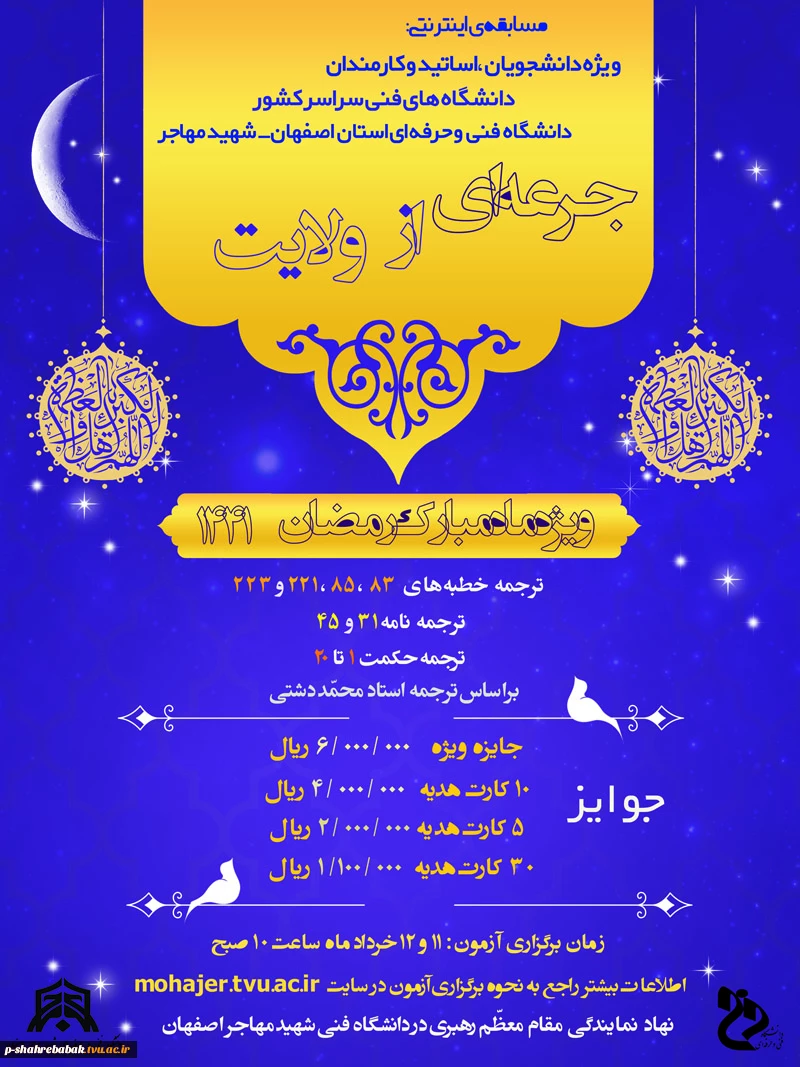 مسابقه‌ی اینترنتی:
ویژه دانشجویان ،اساتید و کارمندان
دانشگاه های فنی سراسر کشور
دانشگاه فنی و حرفه ای استان اصفهان_ شهید مهاجر
جرعه‌ای از ولایت
ویژه ماه مبارک رمضان ۱۴۴۱
ترجمه خطبه های ۸۳ ،۸۵ ،۲۲۱ و ۲۲۳
ترجمه نامه ۳۱ و ۴۵
ترجمه حکمت ۱ تا ۲۰
براساس ترجمه استاد محمّد دشتی
جوایز
جایزه ویژه ۶/۰۰۰/۰۰۰ ریال
۱۰ کارت هدیه ۴/۰۰۰/۰۰۰ ریال
۵ کارت هدیه ۲/۰۰۰/۰۰۰ ریال
۳۰ کارت هدیه ۱/۱۰۰/۰۰۰ ریال
زمان برگزاری آزمون: ۱۱ و ۱۲ خرداد ماه ساعت ۱۰ صبح
اطلاعات بیشتر راجع به نحوه برگزاری آزمون در سایت mohajer.tvu.ac.ir
نهاد نمایندگی مقام معظّم رهبری در دانشگاه فنی شهید مهاجر اصفهان
p-shahrebabak.tvu.ac.ir